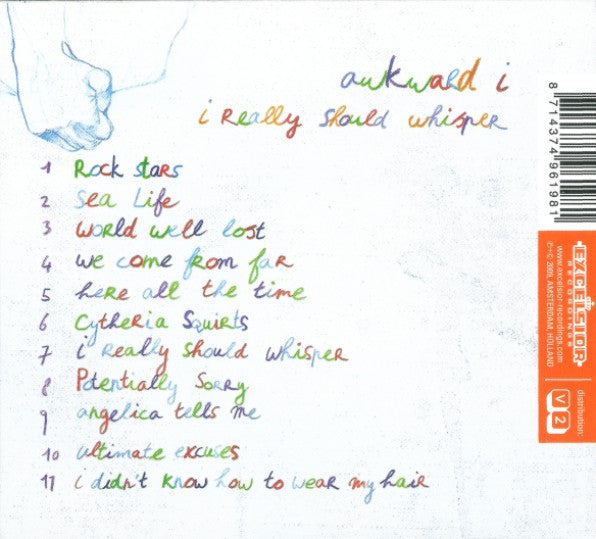 awkward i
i really should whisper
1 Rock stars
2 Sea Life
3 World well lost
4 we come from far
5 here all the time
6 Cytheria Squirts
7 i really should whisper
8 Potentially Sorry
9 angelica tells me
10 ultimate excuses
11 i didn't know how to wear my hair
8 714374 961981
EXCELSIOR
RECORDINGS
www.excelsior-recordings.com
℗+© 2009, AMSTERDAM, HOLLAND
distribution:
V2